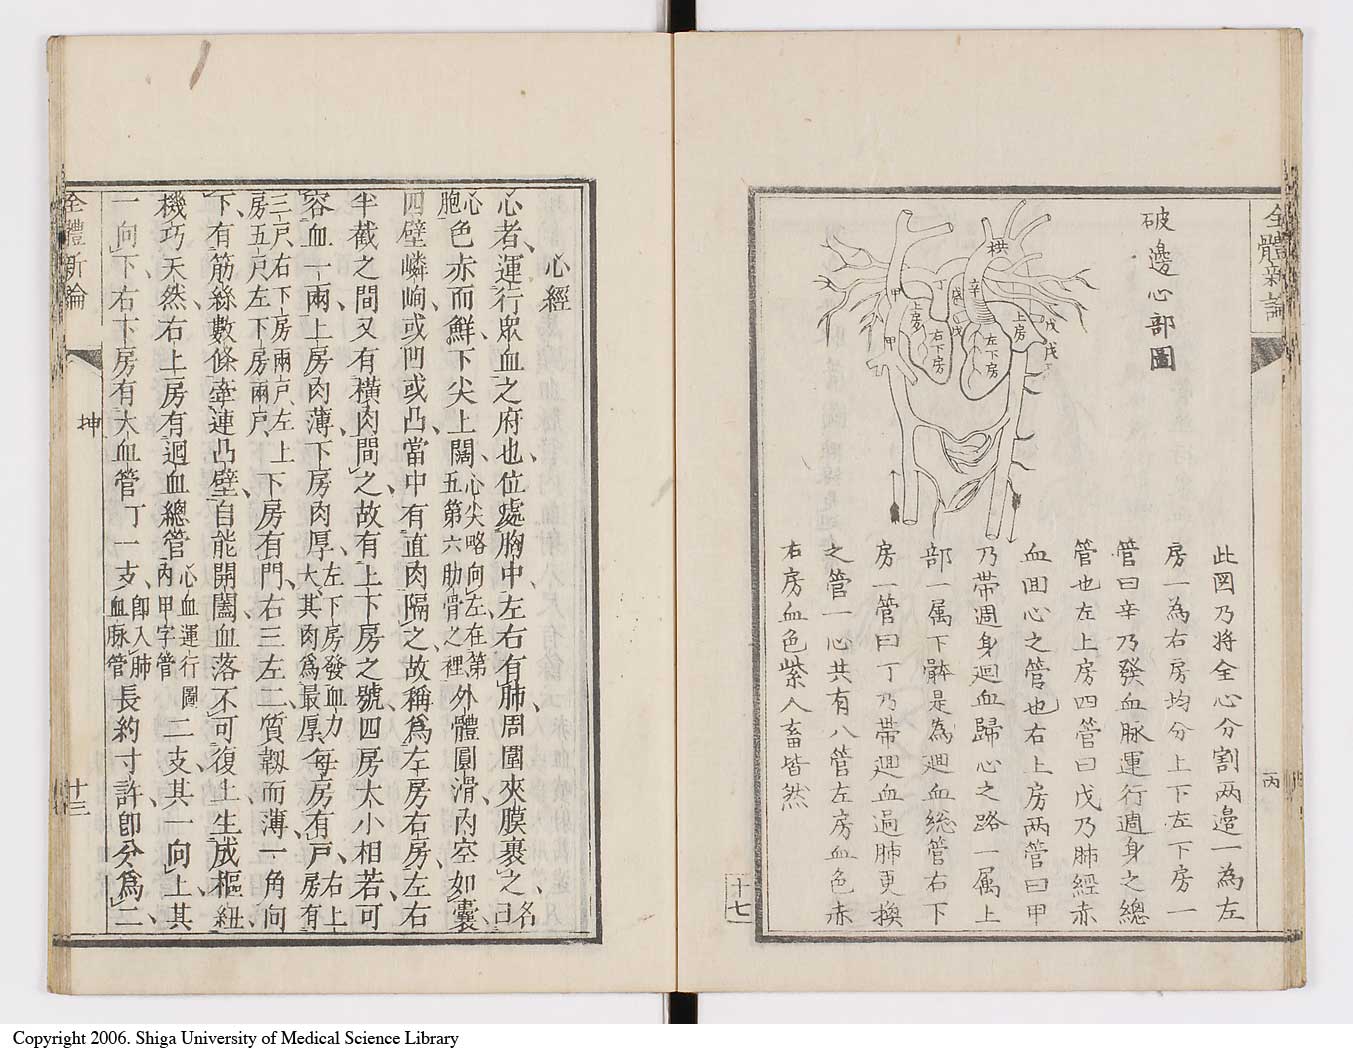 全體新論
丙
十七
破邊心部圖
栱
辛
丁
戊
甲
上房
右下房
左下房
上房
戊
戊
戊
甲
此図乃將全心分割两邉一為左
房一為右房均分上下左下房一
管曰辛乃發血脉運行週身之總
管也左上房四管曰戊乃肺經赤
血囬心之管也右上房两管曰甲
乃帶週身迴血歸心之路一属上
部一属下骵是為迴血総管右下
房一管曰丁乃帶迴血過肺更換
之管一心共有八管左房血色赤
右房血色紫人畜皆然
心經
心者運行眾血之府也位處胸中左右有肺周圍夾膜裹之名曰
心胞色赤而鮮下尖上闊心尖略向左在第五第六肋骨之裡外體圓滑內空如囊
四壁嶙峋或凹或凸當中有直肉隔之故稱爲左房右房左右
半截之間又有橫肉間之故有上下房之號四房大小相若可
容血一兩上房肉薄下房肉厚左下房發血力大其肉爲最厚每房有戶右上房有
三戶右下房兩戶左上房五戶左下房兩戶下房有門右三左二質韌而薄一角向
下有筋絲數條牽連凸壁自能開闔血落不可復上生成樞紐
機巧天然右上房有迴血總管心血運行圖內甲字管二支其一向上其
一向下右下房有大血管丁一支即入肺血脉管長約寸許即分爲二
全體新論
坤
十三